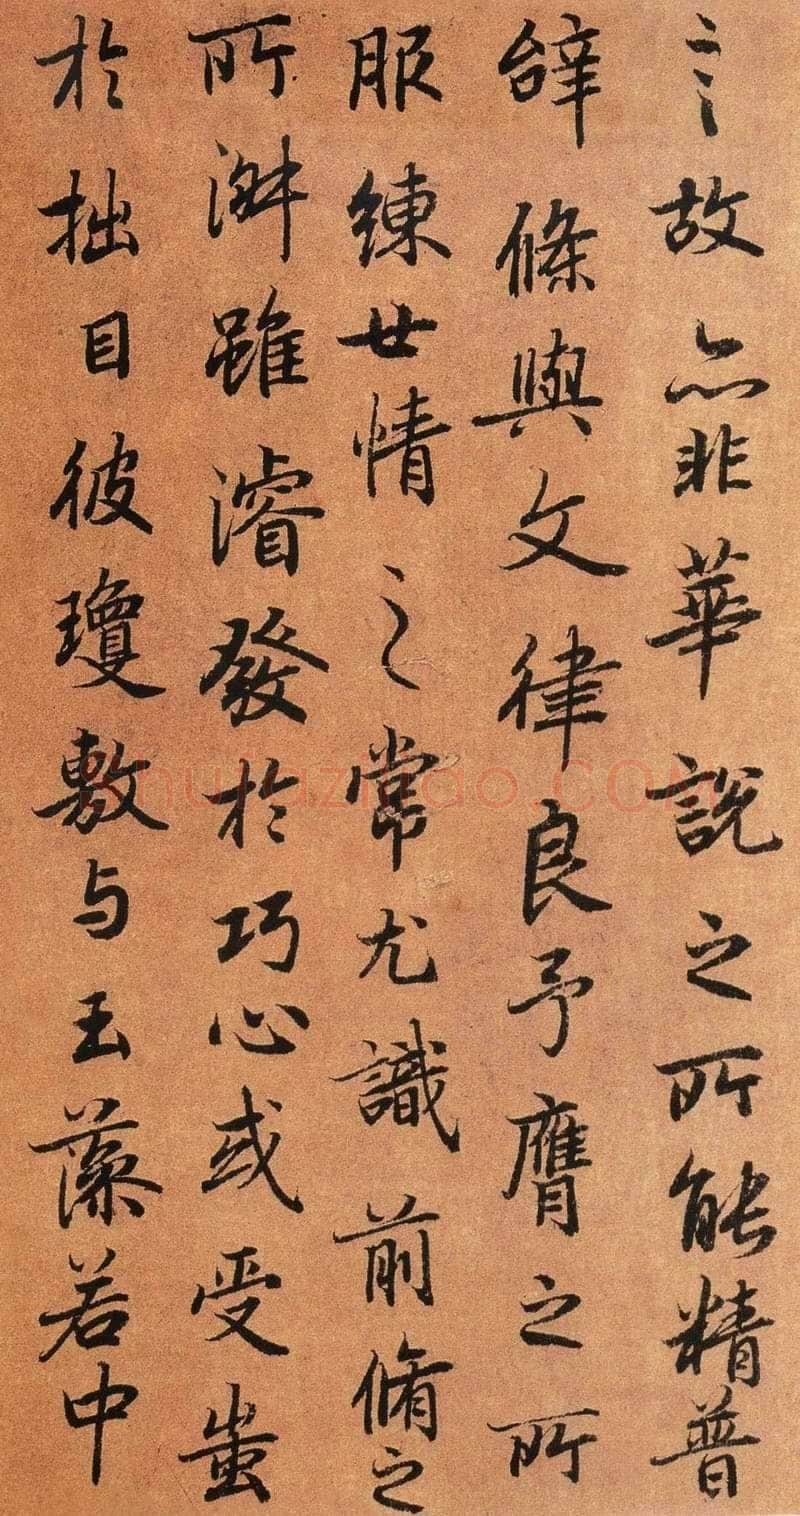 之故亦非華說之所能精普
辭條與文律良予膺之所
服練世情之常尤識前脩之
所淋雖濬發於巧心或受蚩
於拙目彼瓊敷与玉藻若中
shufazidao.COM